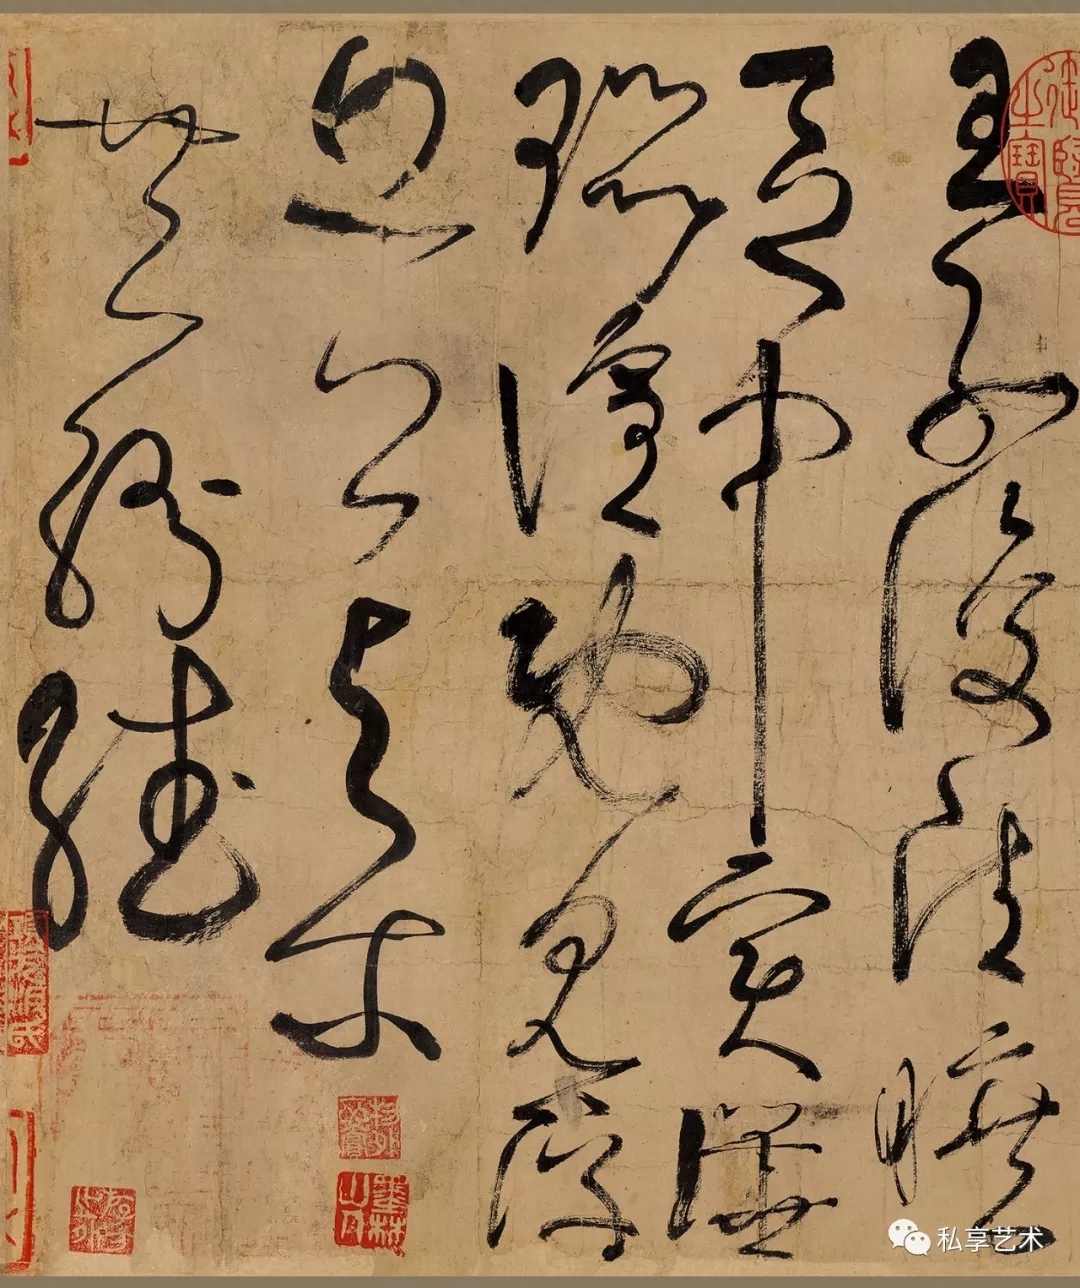 王子復清曠
區中實譁
囂喧既見浮
丘公與尔
共紛繙
私享艺术